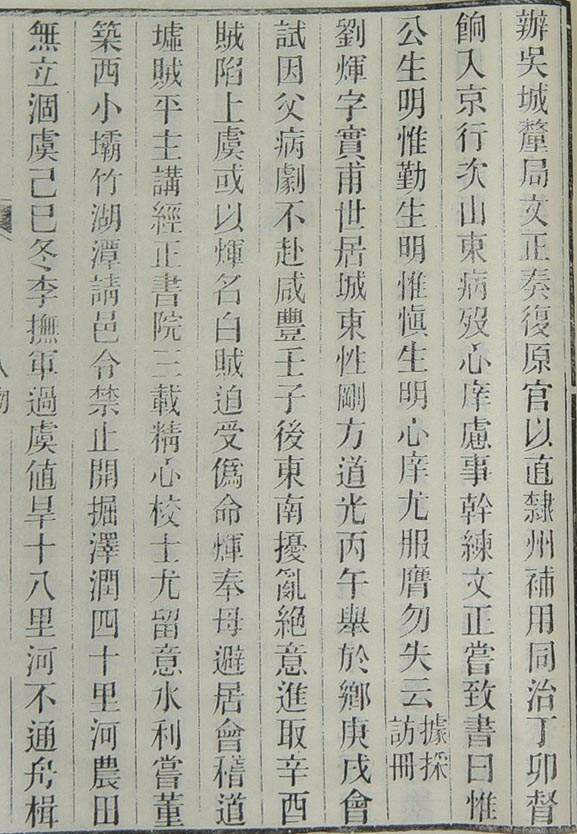 辦吳城釐局文正奏復原官以直隸州補用同治丁卯督
餉入京行次山東病歿心庠慮事幹練文正嘗致書曰惟
公生明惟勤生明惟愼生明心庠尤服膺勿失云據採訪冊
劉煇字實甫世居城東性剛方道光丙午舉於鄉庚戌會
試因父病劇不赴咸豐壬子後東南擾亂絕意進取辛酉
賊陷上虞或以煇名白賊迫受僞命煇奉母避居會稽道
墟賊平主講經正書院三載精心校士尤留意水利嘗董
築西小壩竹湖潭請邑令禁止開掘澤潤四十里河農田
無立涸虞己巳冬李撫軍過虞値旱十八里河不通舟楫